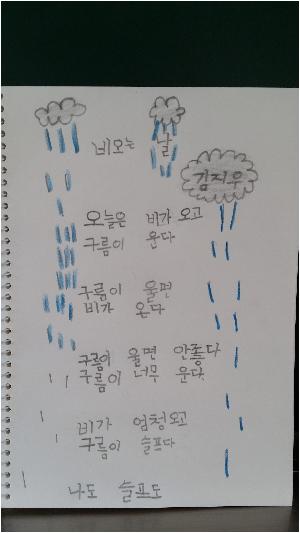 비오는 날
김지우
오늘은 비가 오고
구름이 운다
구름이 울면
비가 온다
구름이 울면 안좋다
구름이 너무 운다
비가 엄청오고
구름이 슬프다
나도 슬프도